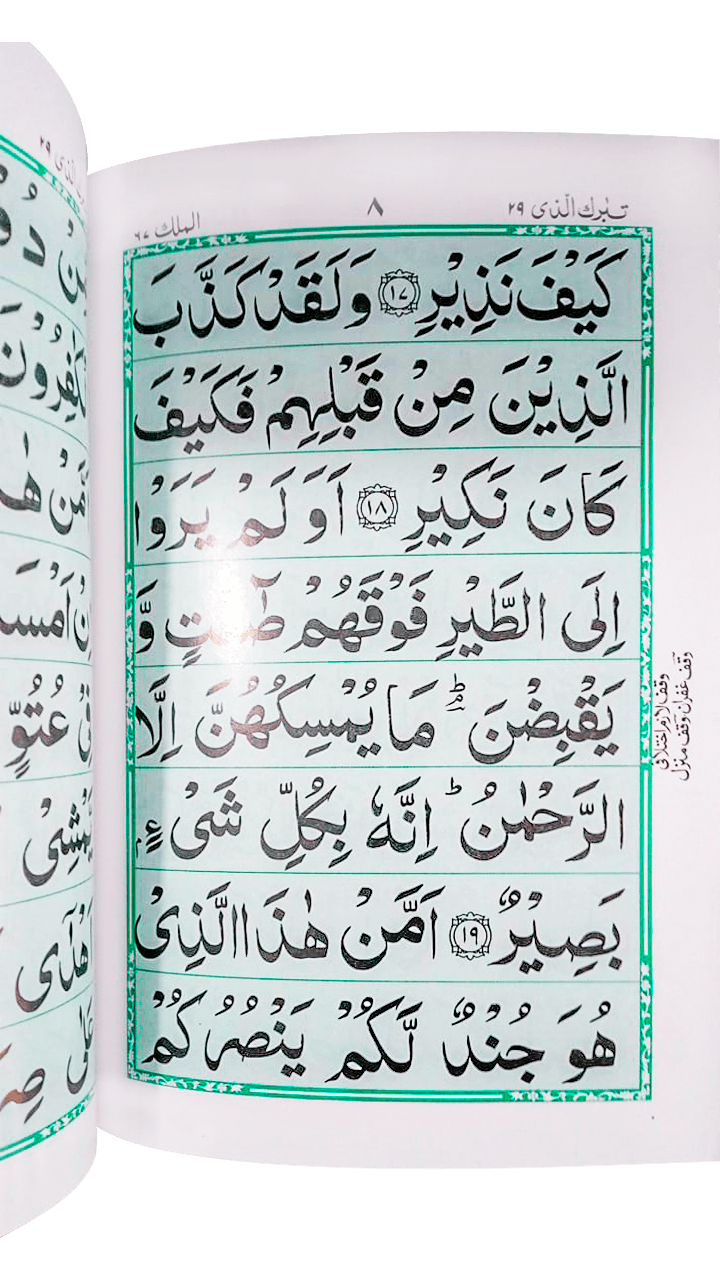 تبٰرك الّذی ٢٩
٨
الملك ٦٧
كَيْفَ نَذِيْرِ ١٧ وَلَقَدْ كَذَّبَ
الَّذِيْنَ مِنْ قَبْلِهِمْ فَكَيْفَ
كَانَ نَكِيْرِ ١٨ اَوَلَمْ يَرَوْا
اِلَى الطَّيْرِ فَوْقَهُمْ صٰٓفّٰتٍ وَّ
يَقْبِضْنَ ؔۘؕ مَا يُمْسِكُهُنَّ اِلَّا
الرَّحْمٰنُ ؕ اِنَّهٗ بِكُلِّ شَیْءٍۭ
بَصِيْرٌ ١٩ اَمَّنْ هٰذَا الَّذِیْ
هُوَ جُنْدٌ لَّكُمْ يَنْصُرُكُمْ
وقف لازم اختلافی
وقف غفران وقف منزل
الّذی ٢٩
كٰفِرُوْنَ
اَمَّنْ
اَمْسَ
عُتُوٍّ
يَّمْشِیْ
اَهْدٰٓی
عَلٰى